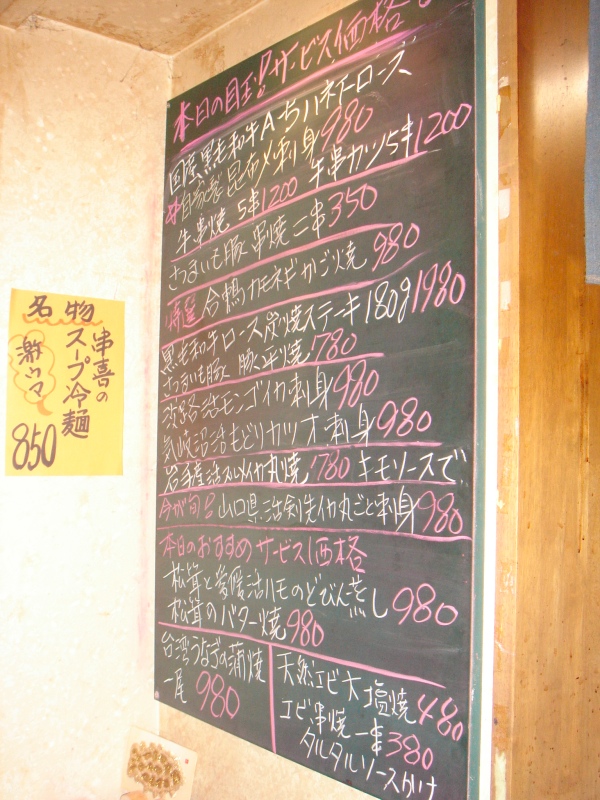 本日の目玉!サービス価格
国産黒毛和牛A-5ハネドローズ
自家製昆布〆刺身 980
牛串焼 5本1200 牛串カツ5本1200
さつまいも豚 串焼 二本350
特選 合鴨カモネギかご焼 980
黒毛和牛ロース炭焼ステーキ180g1980
さつまいも豚 豚平焼 780
淡路活モンゴイカ刺身 980
気仙沼活もどりカツオ刺身 980
岩手産活スルメイカ丸焼 780 キモソースで
今が旬! 山口県活剣先イカ丸ごと刺身 980
本日のおすすめサービス価格
松茸と愛媛活ハモのどびん蒸し 980
松茸のバター焼 980
台湾うなぎの蒲焼
一尾 980
天然エビ大塩焼 480
エビ串焼一本380
タルタルソースかけ
名物
串喜の
スープ冷麺
激ウマ
850